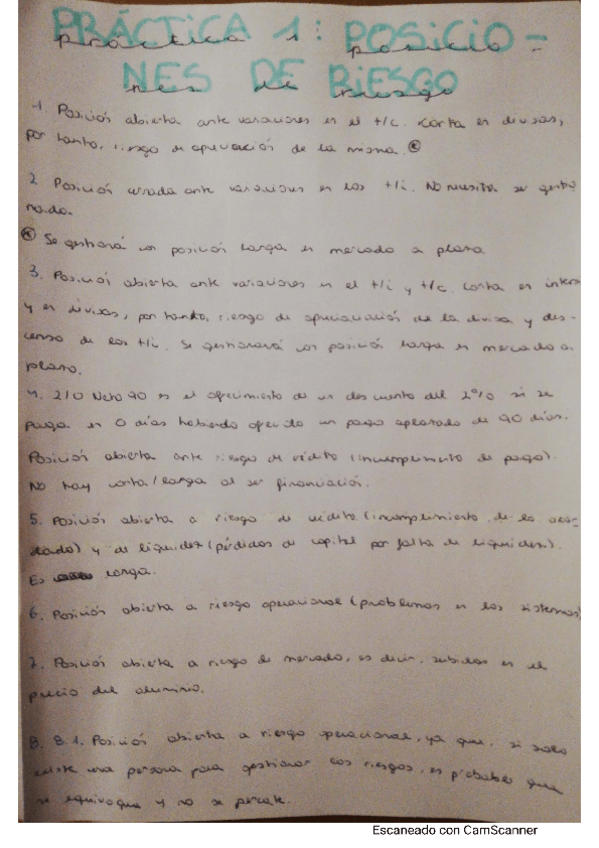 PRÁCTICA 1: POSICIO-
práctica 1 posicio
NES DE RIESGO
nes de riesgo
1. Posición abierta ante variaciones en el t/c. Corta en divisas,
por tanto, riesgo de apreciación de la misma. *
2. Posición cerrada ante variaciones en los t/i. No necesita ser gestio
nada.
* Se gestionará con posición larga en mercado a plazo
3. Posición abierta ante variaciones en el t/i y t/c. Corta en interés
y en divisas, por tanto, riesgo de apreciación de la divisa y des-
censo de los t/i. Se gestionará con posición larga en mercado a
plazo.
4. 2/0 Neto 90 es el ofrecimiento de un descuento del 2% si se
paga en 0 días habiendo ofrecido un pago aplazado de 90 días.
Posición abierta ante riesgo de crédito (incumplimiento de pago).
No hay corta/larga al ser financiación.
5. Posición abierta a riesgo de crédito (incumplimiento de lo acor
dado) y de liquidez (pérdidas de capital por falta de liquidez).
Es larga.
6. Posición abierta a riesgo operacional (problemas en los sistemas)
7. Posición abierta a riesgo de mercado, es decir, subidas en el
precio del aluminio.
8. 8.1. Posición abierta a riesgo operacional, ya que, si solo
existe una persona para gestionar los riesgos, es probable que
se equivoque y no se percate.
Escaneado con CamScanner